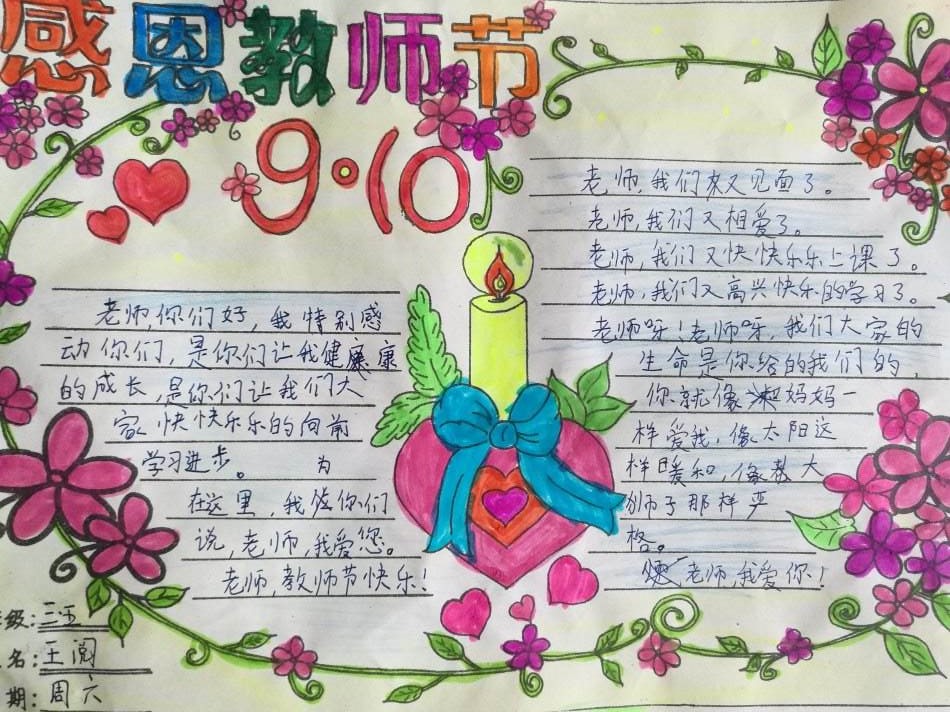 感恩教师节
9·10
老师,你们好,我特别感
动你们,是你们让我健康康
的成长,是你们让我们大
家快快乐乐的向前
学习进步。为
在这里,我你们
说,老师,我爱您。
老师,教师节快乐!
老师,我们来又见面了。
老师,我们又相爱了。
老师,我们又快快乐乐上课了。
老师,我们又高兴快乐的学习了。
老师呀!老师呀,我们大家的
生命是你给的我们的,
你就像妈妈一
样爱我,像太阳这
样暖和,像教大
狮子那样严
格。
老师,我爱你!
级:三五
名:王阅
期:周六